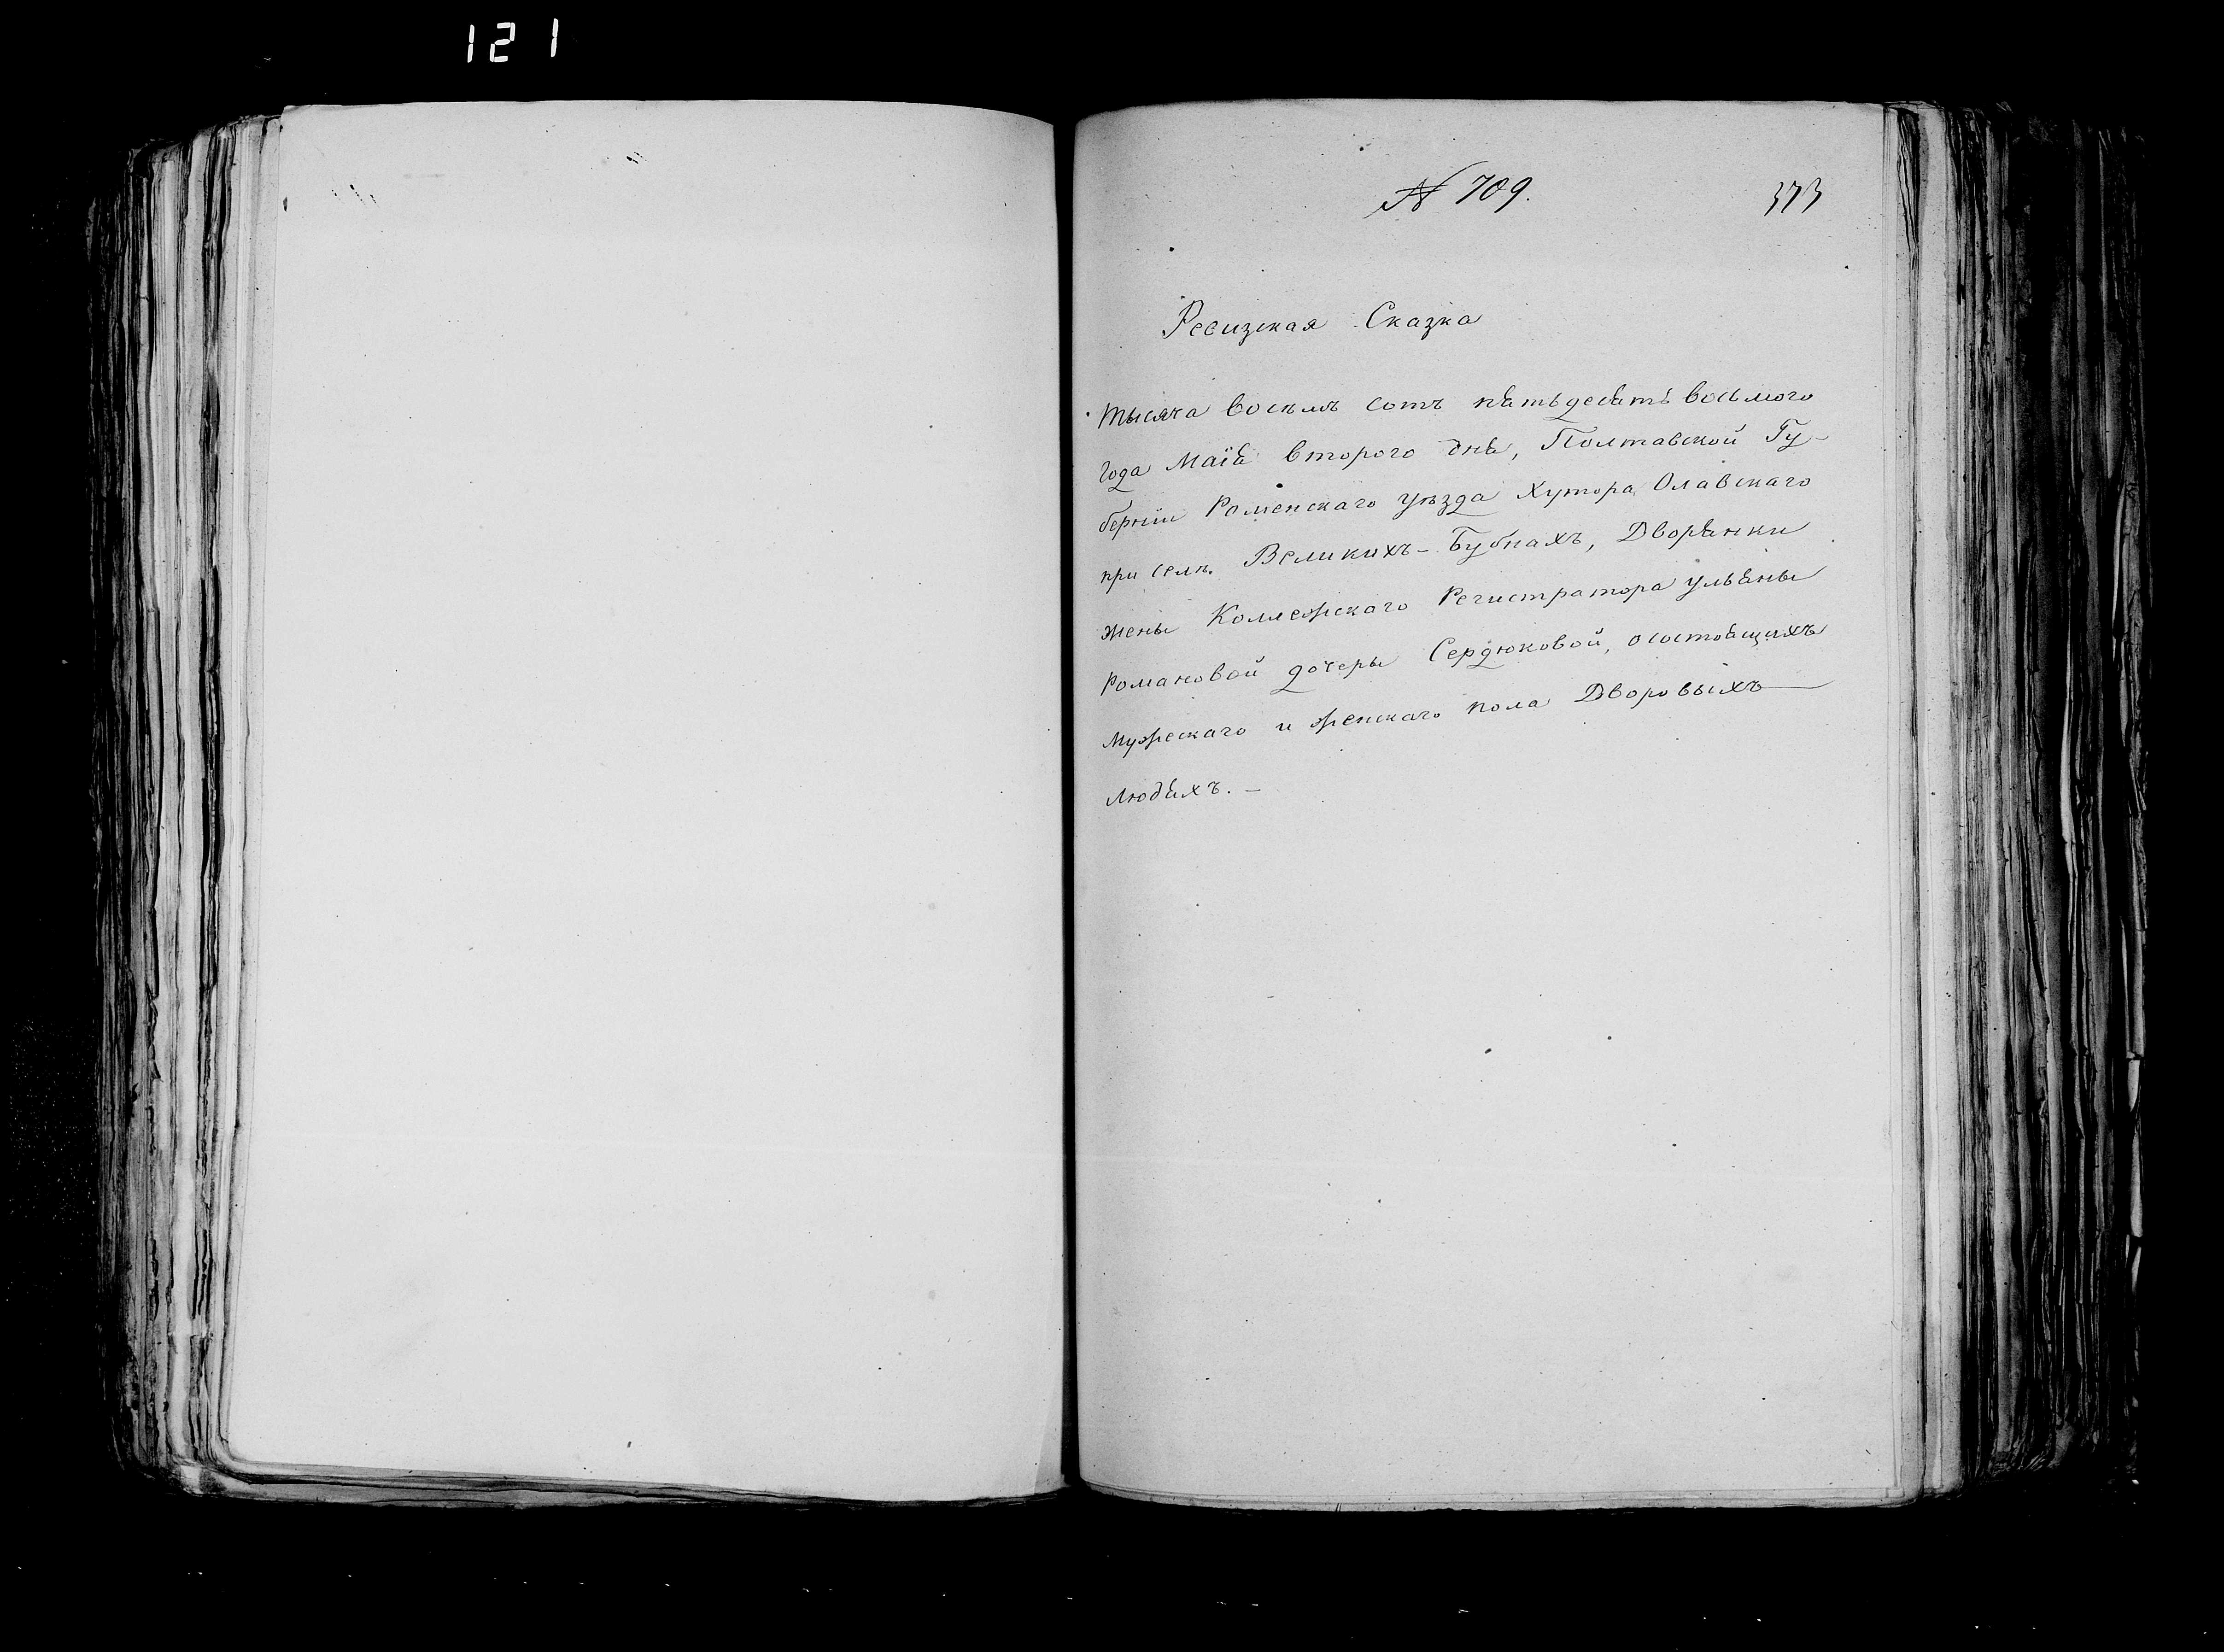 121
№ 709.
373
Ревизская Сказка
Тысяча восемь сотъ пятьдесятъ восьмого
года Маія второго дня, Полтавской Гу-
берніи Роменскаго уѣзда Хутора Олавскаго
при селѣ Великихъ-Бубнахъ, Дворянки
жены Коллежскаго Регистратора Ульяны
Романовой дочери Сердюковой, о состоящихъ
мужескаго и женскаго пола Дворовыхъ
людяхъ. —